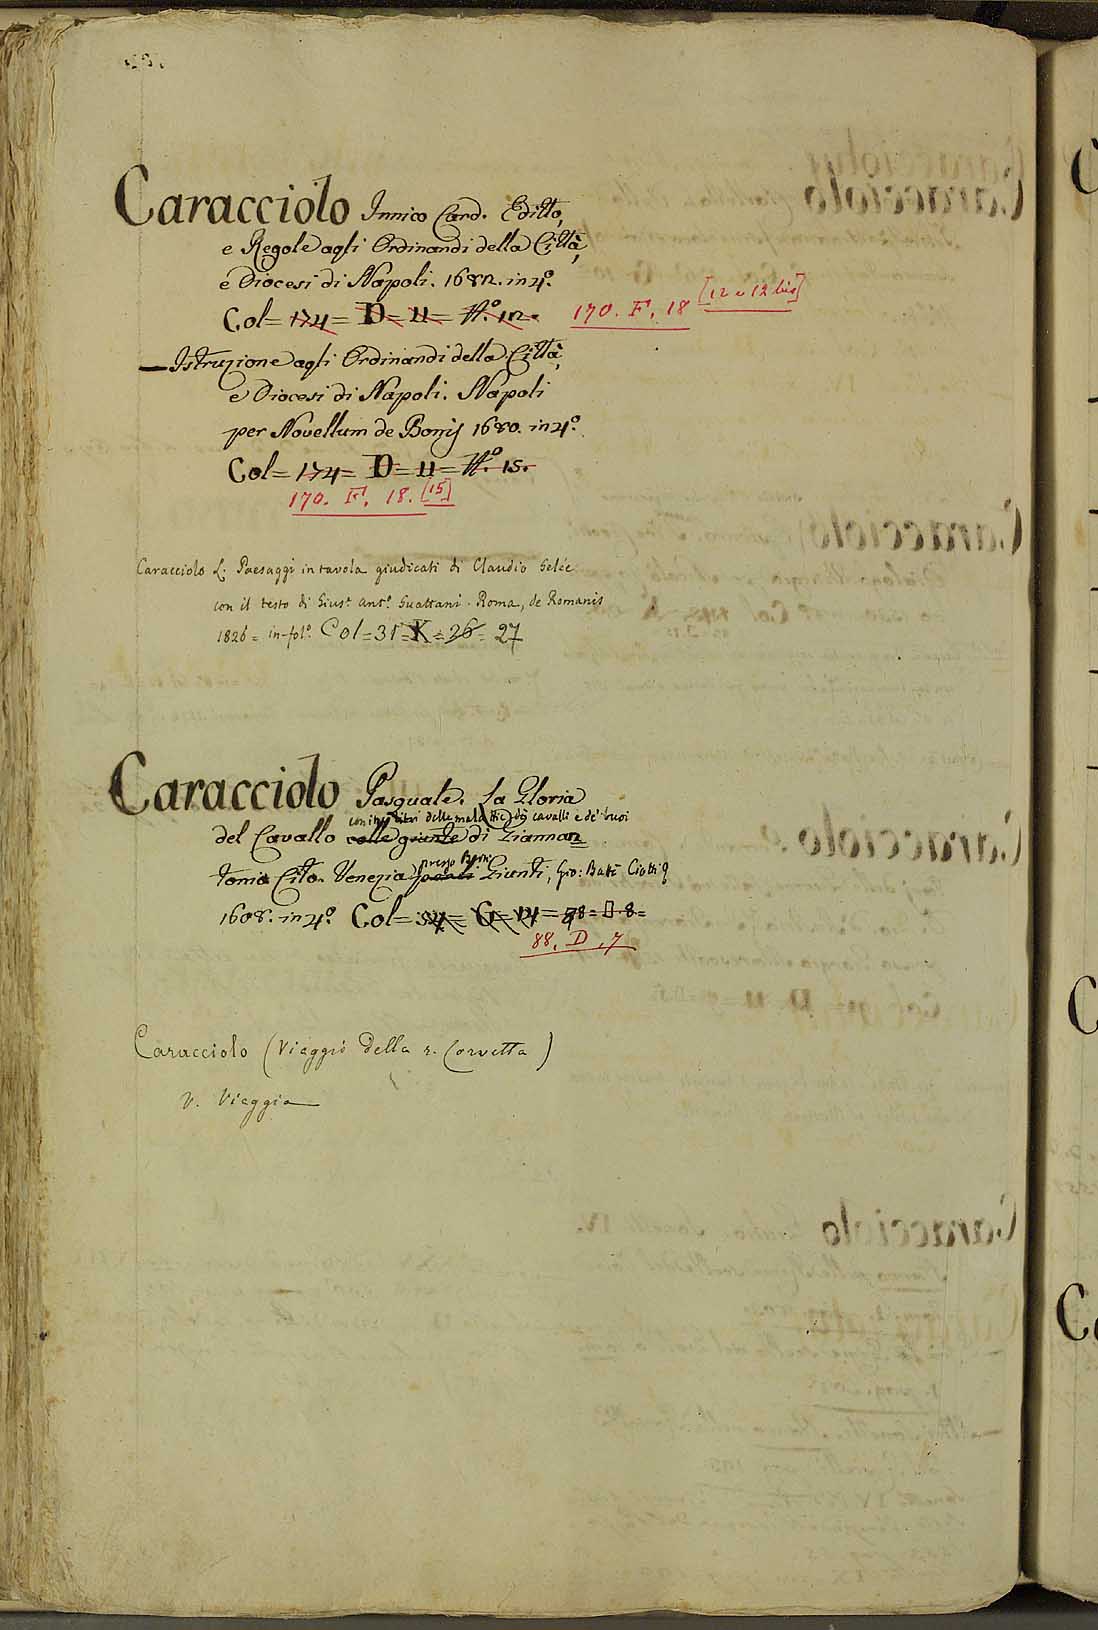 Caracciolo Innico Card. Editto,
e Regole agli Ordinandi della Città,
e Diocesi di Napoli. 1682. in 4°.
Col = 174 = D = 11 = N°. 12. 170. F. 18 [12 e 12 bis]
— Istruzione agli Ordinandi della Città,
e Diocesi di Napoli. Napoli
per Novellum de Bonis 1680. in 4°.
Col = 174 = D = 11 = N°. 15.
170. F. 18. [15]
Caracciolo L. Paesaggi in tavola giudicati di Claudio Gelée
con il testo di Gius.e Ant.o Guattani. Roma, de Romanis
1826 = in-fol°. Col = 31 = K = 26 = 27
Caracciolo Pasquale. La Gloria
con due libri delle malattie de' cavalli e de' buoi
del Cavallo colle giunte di Giannan
tonio Cito. Venezia presso Bern. Giunti, Gio: Batt. Ciotti
1608. in 4°. Col = 54 = G = 14 = 78 = 8 =
88. D. 7
Caracciolo (Viaggio della r. Corvetta)
V. Viaggio